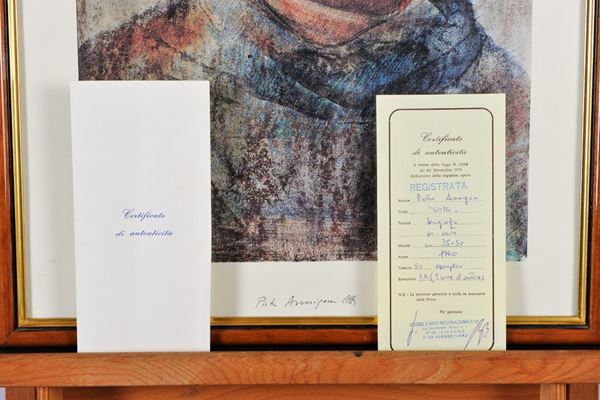 Certificato
di autenticità
Pietro Annigoni
Certificato
di autenticità
A norma della legge N. 1062
del 20 Novembre 1971
dichiariamo della seguente opera:
REGISTRATA
Autore Pietro Annigoni
Titolo "VOLTO"
Tecnica Serigrafia
su carta
Misure cm. 35x50
Anno 1960
Tiratura 50 esemplari
Esemplare P.A (Prove d'autore)
N.B. - La presente garanzia è nulla se mancante
della firma.
Per garanzia
STUDIO D'ARTE INTERNAZIONALE
LIVORNO